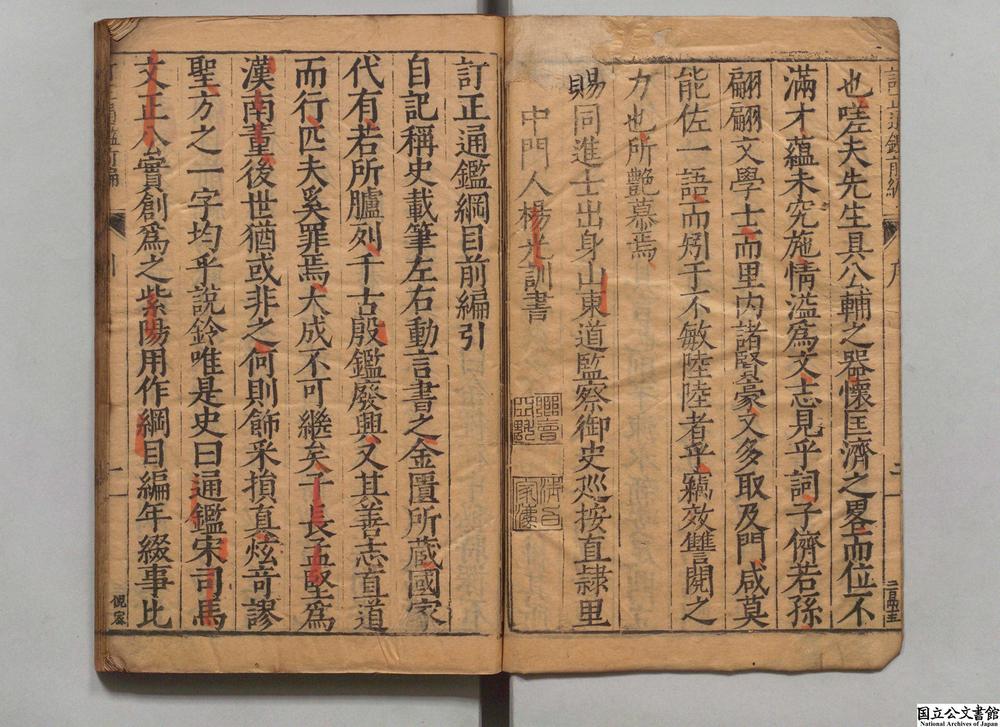 也嗟夫先生具公輔之器懷匡濟之畧而位不
滿才蘊未究施情溢爲文志見乎詞子儕若孫
翩翩文學士而里内諸賢豪又多取及門咸莫
能佐一語而矧于不敏陸陸者乎竊效讐閱之
力也所艶慕焉
賜同進士出身山東道監察御史巡按直隷里
中門人楊光訓書
訂正通鑑綱目前編引
自記稱史載筆左右動言書之金匱所藏國家
代有若所臚列千古殷鑑廢興又其善志直道
而行匹夫奚罪焉大成不可繼矣子長孟堅爲
漢南董後世猶或非之何則飾采損真炫奇謬
聖方之一字均乎説鈴唯是史曰通鑑宋司馬
文正公實創爲之紫陽用作綱目編年綴事比
国立公文書館
National Archives of Japan